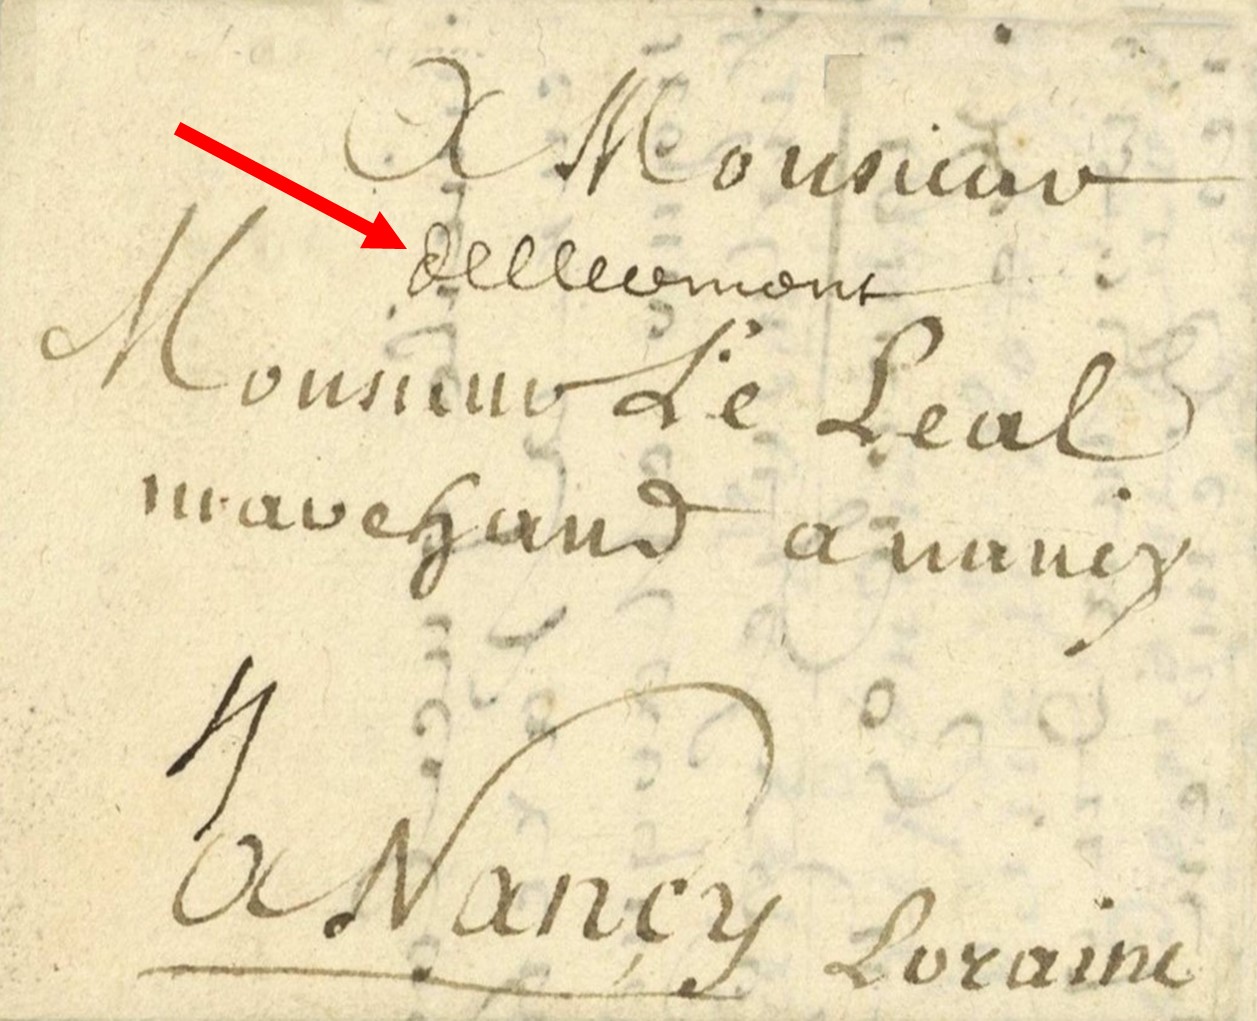 A Monsieur
dellecmont
Monsieur Le Leal
marchand a nancy
4
a Nancy Loraine